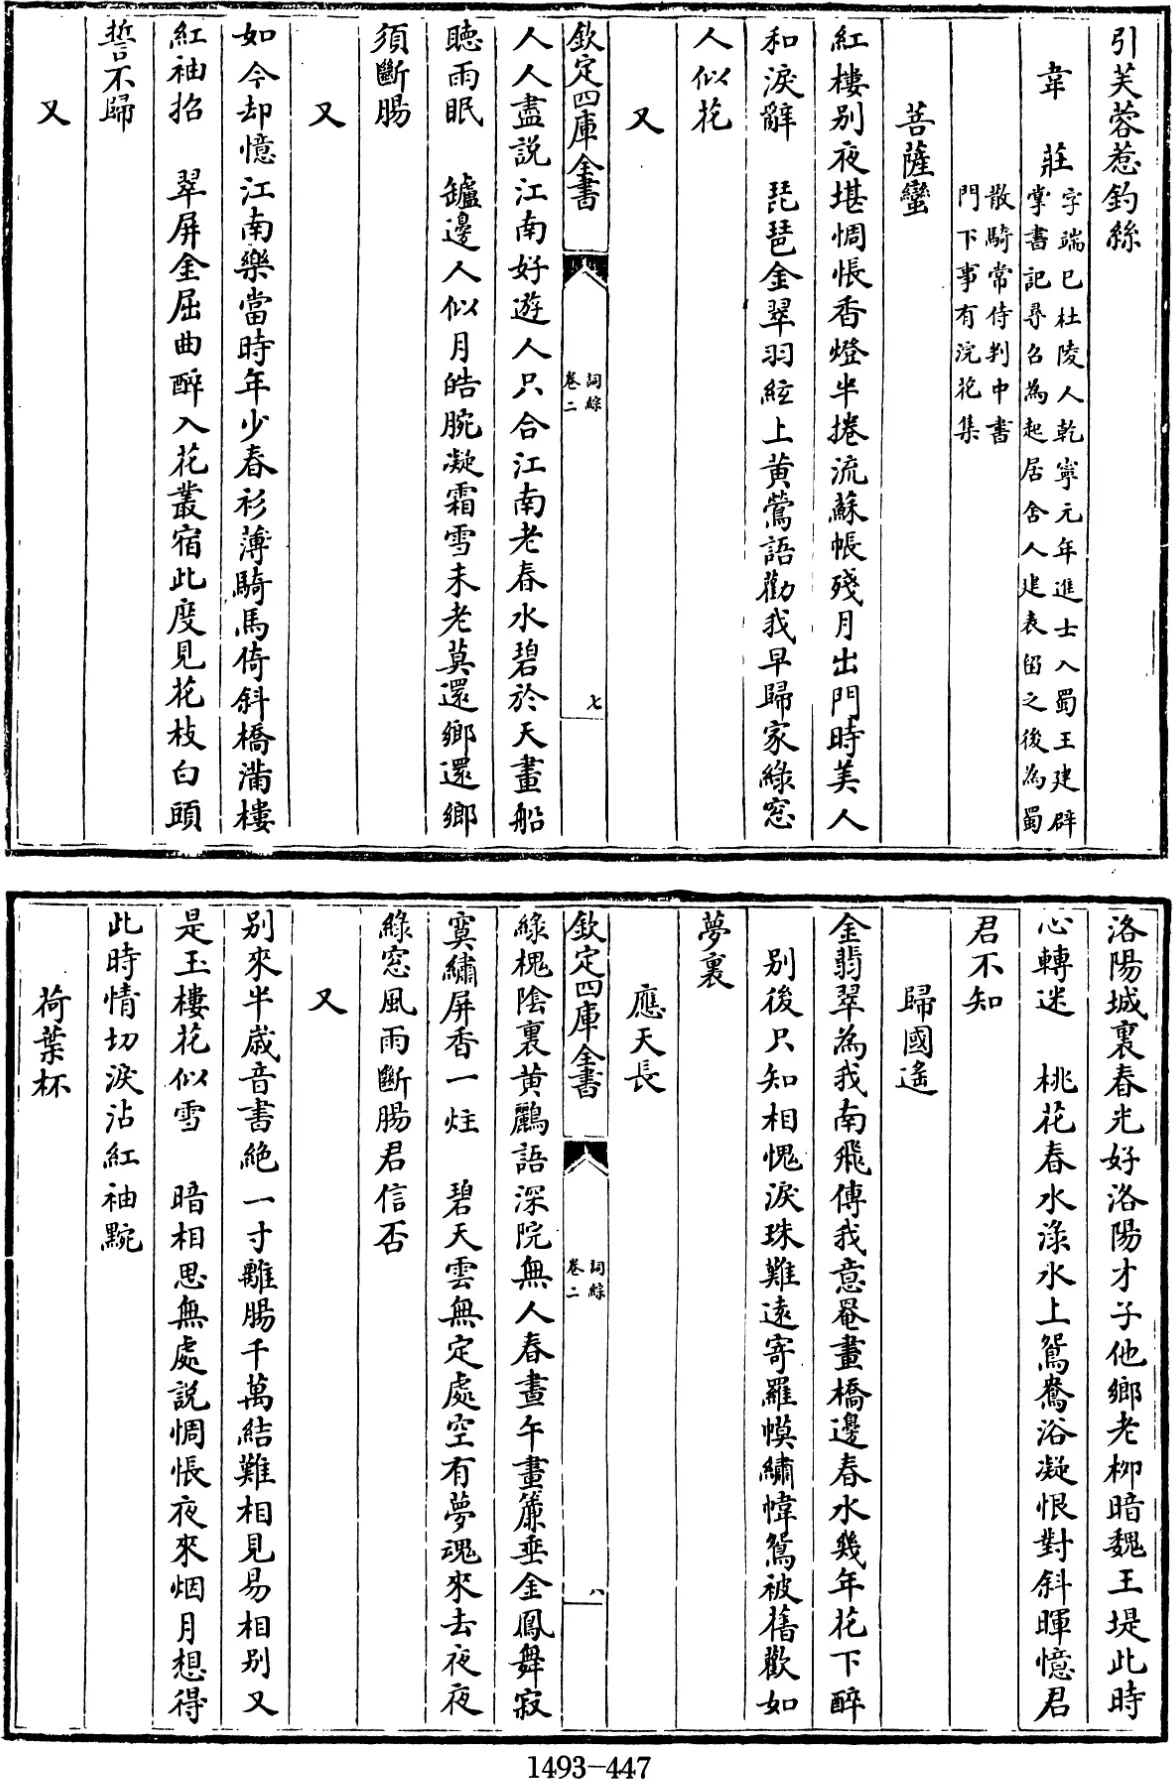 引芙蓉惹釣絲
韋　莊 字端已杜陵人乾寧元年進士入蜀王建辟
掌書記尋召為起居舍人建表留之後為蜀
散騎常侍判中書
門下事有浣花集
菩薩蠻
紅樓别夜堪惆悵香燈半捲流蘇帳殘月出門時美人
和淚辭　琵琶金翠羽絃上黄鶯語勸我早歸家綠窓
人似花
又
欽定四庫全書
詞綜
卷二
七
人人盡説江南好遊人只合江南老春水碧於天畫船
聽雨眠　鑪邊人似月皓腕凝霜雪未老莫還鄉還鄉
須斷腸
又
如今却憶江南樂當時年少春衫薄騎馬倚斜橋滿樓
紅袖招　翠屏金屈曲醉入花叢宿此度見花枝白頭
誓不歸
又
洛陽城裏春光好洛陽才子他鄉老栁暗魏王堤此時
心轉迷　桃花春水淥水上鴛鴦浴凝恨對斜暉憶君
君不知
歸國遙
金翡翠為我南飛傳我意罨畫橋邊春水幾年花下醉
别後只知相愧淚珠難逺寄羅幙繡幃鴛被舊歡如
夢裏
應天長
欽定四庫全書
詞綜
卷二
八
綠槐陰裏黄鸝語深院無人春晝午畫簾垂金鳳舞寂
寞繡屏香一炷　碧天雲無定處空有夢魂來去夜夜
綠窓風雨斷腸君信否
又
别來半歲音書絶一寸離腸千萬結難相見易相别又
是玉樓花似雪　暗相思無處説惆悵夜來烟月想得
此時情切淚沾紅袖黦
荷葉杯
1493-447